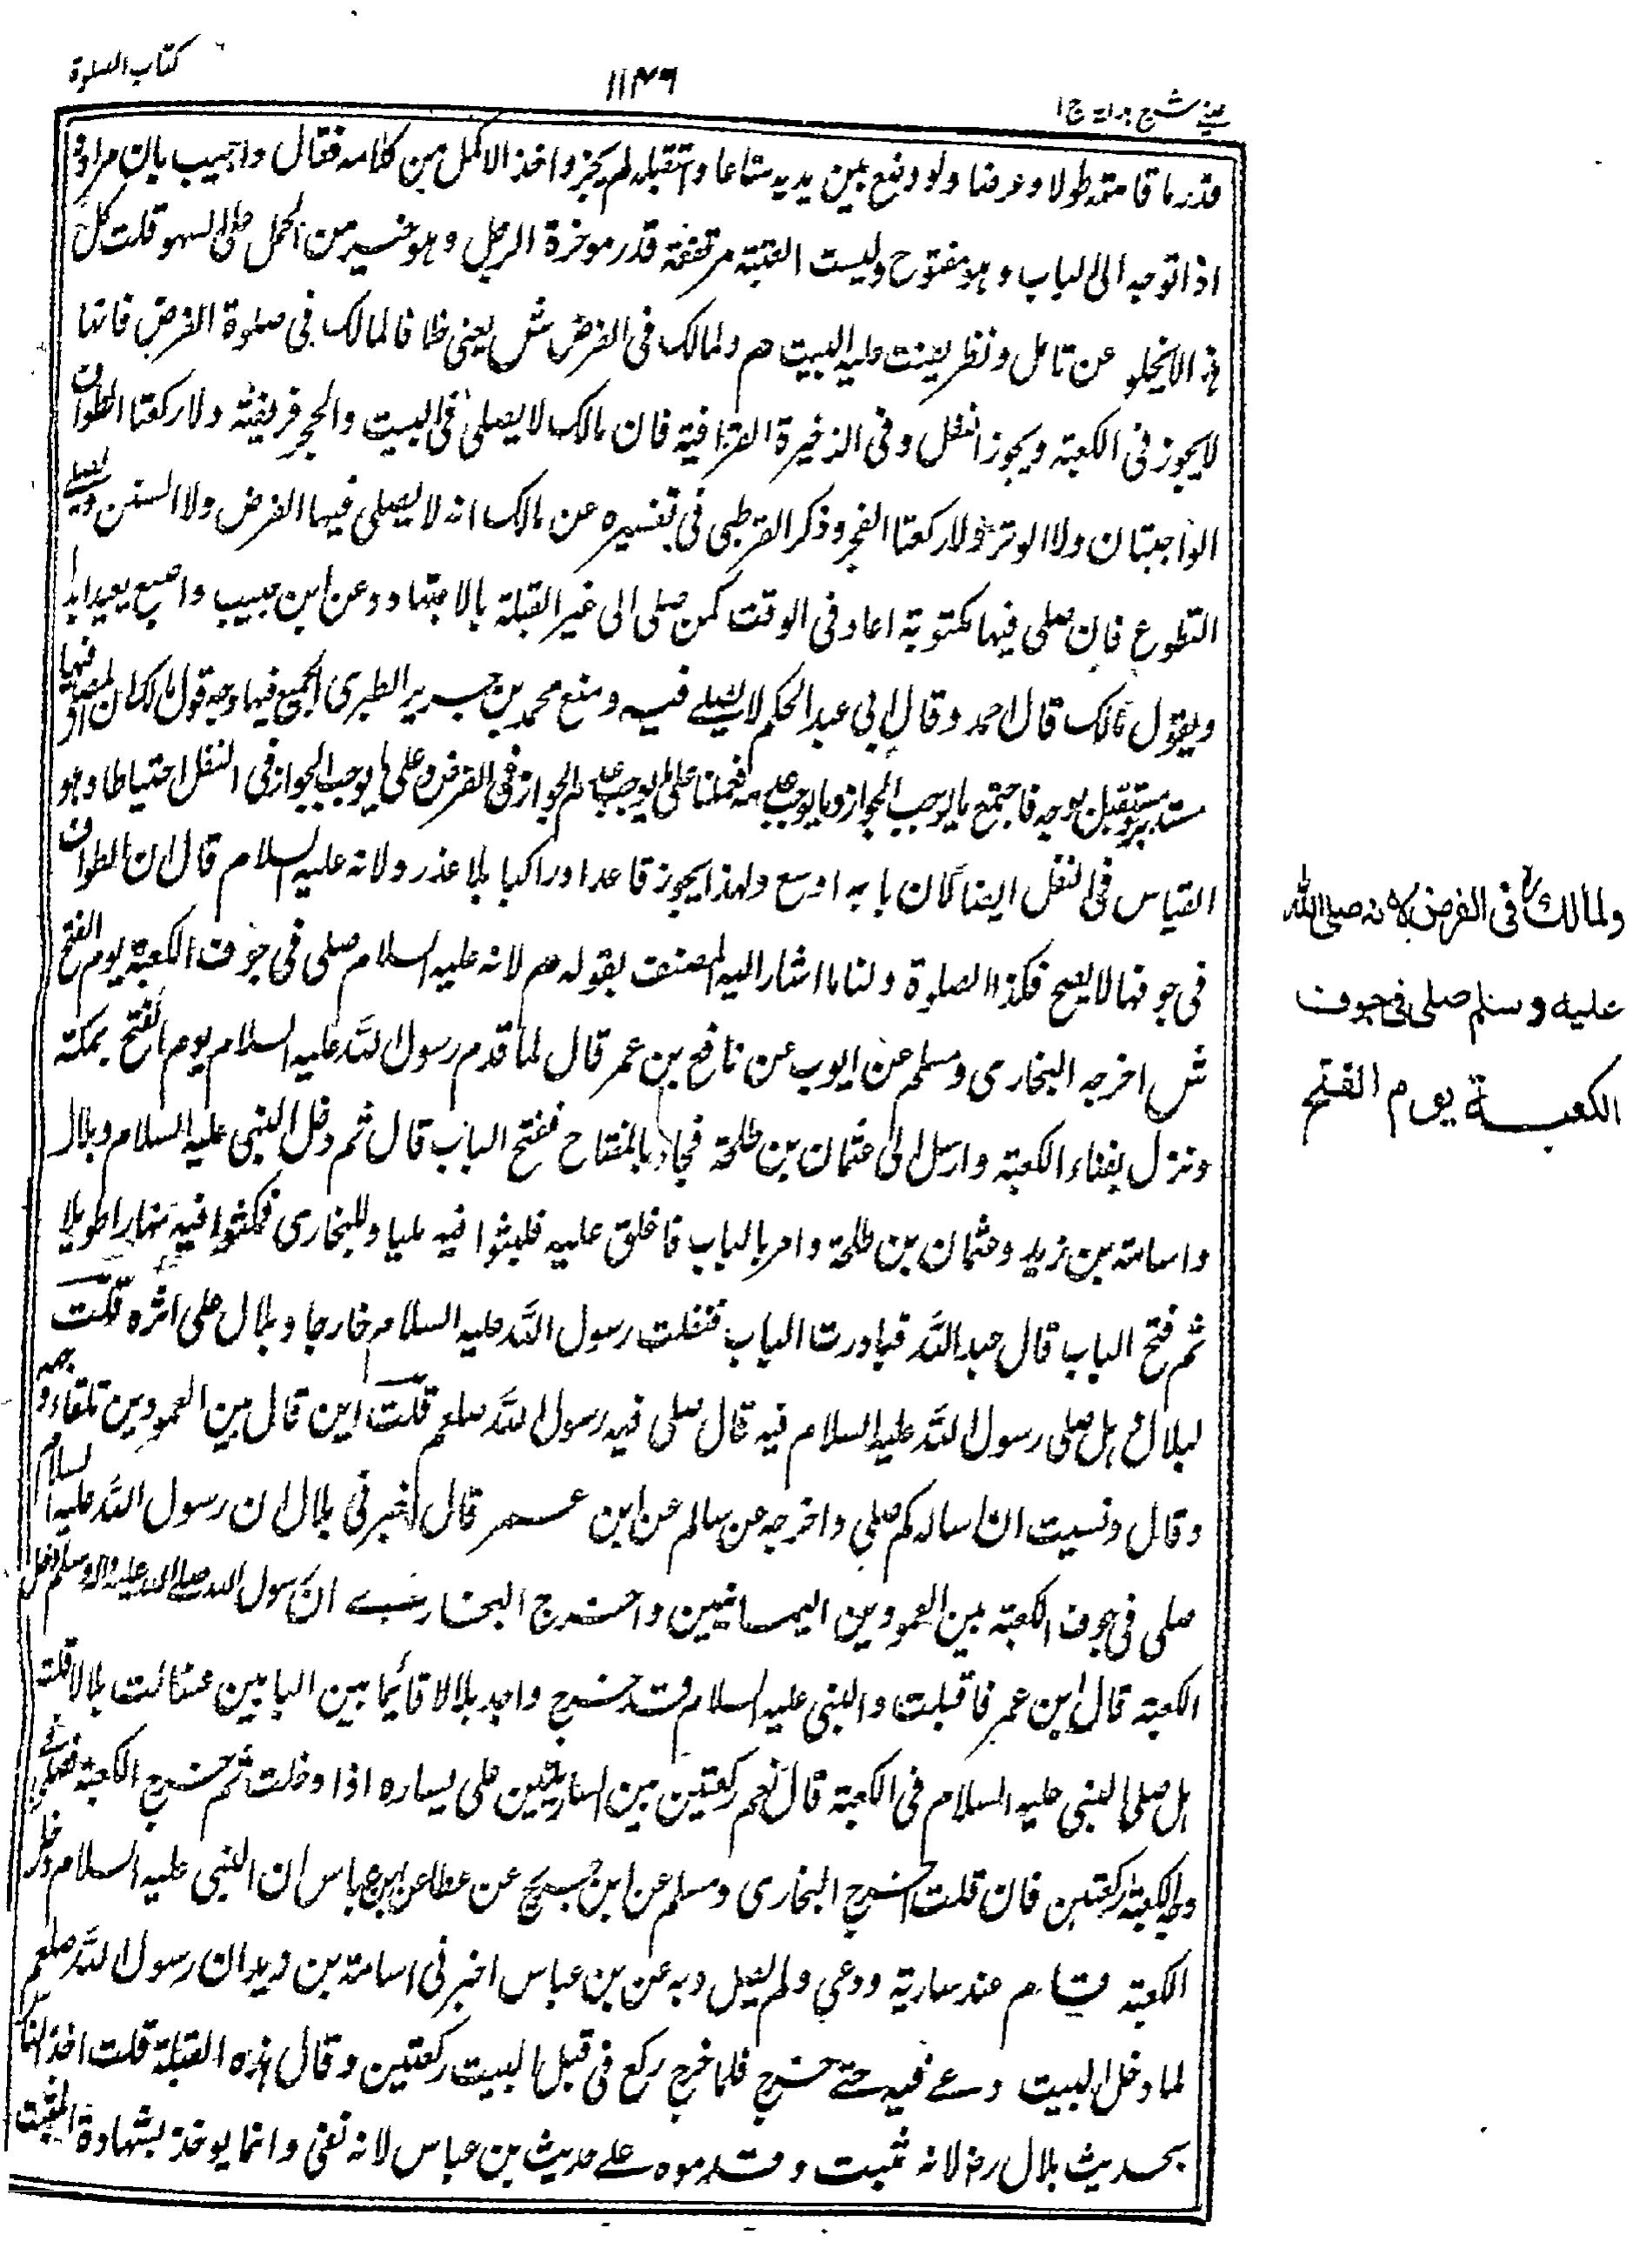 عيني شرح هداية ج ١
١١٤٦
كتاب الصلوة
قدر ما قامته طولا وعرضا ولو وضع بين يديه متاعا واستقبله لم يجز واخذ الاكمل من كلامه فقال واجيب بان مراده
اذا توجه الى الباب وهو مفتوح وليست العتبة مرتفعة قدر موخرة الرحل وهو خير من الحمل على السهو قلت كل
هذا لا يخلو عن تامل ونظر يعنت عليه البيت هم ولمالك فى الفرض ش يعنى خلافا لمالك فى صلوة الفرض فانها
لا يجوز فى الكعبة ويجوز النفل وفى الذخيرة القرافية فان مالك لا يصلى فى البيت والحجر فريضة ولا ركعتا الطواف
الواجبتان ولا الوتر ولا ركعتا الفجر وذكر القرطبى فى تفسيره عن مالك انه لا يصلى فيها الفرض ولا السنن ويصلى
التطوع فان صلى فيها مكتوبة اعاد فى الوقت كمن صلى الى غير القبلة بالاجتهاد وعن ابن حبيب واصبع يعيد ابدا
وبقول مالك قال احمد وقال ابى عبد الحكم لا يصلى فيه ومنع محمد بن جرير الطبرى الجميع فيها وجه قول مالك ان المصلى فيها
مستدبر ومستقبل بوجه فاجتمع ما يوجب الجواز وما يوجب عدمه فحملنا على ما يوجب عدم الجواز فى الفرض وعلى ما يوجب الجواز فى النفل احتياطا وهو
القياس فى النفل ايضا لان بابه اوسع ولهذا يجوز قاعدا وراكبا بلا عذر ولانه عليه السلام قال ان الطواف
فى جوفها لا يصح فكذا الصلوة ولنا ما اشار اليه المصنف بقوله هم لانه عليه السلام صلى فى جوف الكعبة يوم الفتح
ش اخرجه البخارى ومسلم عن ايوب عن نافع بن عمر قال لما قدم رسول الله عليه السلام يوم الفتح بمكة
ونزل بفناء الكعبة وارسل الى عثمان بن طلحة فجاء بالمفتاح ففتح الباب قال ثم دخل النبى عليه السلام وبلال
واسامة بن زيد وعثمان بن طلحة وامر بالباب فاغلق عليه فلبثوا فيه مليا وللبخارى فمكثوا فيه نهارا طويلا
ثم فتح الباب قال عبد الله فبادرت الباب فتلقت رسول الله عليه السلام خارجا وبلال على اثره قلت
لبلال هل صلى رسول الله عليه السلام فيه قال صلى فيه رسول الله صلعم قلت اين قال بين العمودين تلقاء وجهه
وقال ونسيت ان اساله كم صلى واخرجه عن سالم عن ابن عمر قال اخبرنى بلال ان رسول الله عليه السلام
صلى فى جوف الكعبة بين العمودين اليمانيين واخرج البخارى ان رسول الله صلى الله عليه واله وسلم دخل
الكعبة قال ابن عمر فاقبلت والنبى عليه السلام قد خرج واجد بلالا قائما بين البابين فسالت بلالا قلت
هل صلى النبى عليه السلام فى الكعبة قال نعم ركعتين بين الساريتين على يساره اذا دخلت ثم خرج الكعبة فصلى فى
وجه الكعبة ركعتين فان قلت اخرج البخارى ومسلم عن ابن جريج عن عطا عن ابن عباس ان النبى عليه السلام دخل
الكعبة فقام عند سارية ودعى ولم يصل وبه عن بن عباس اخبرنى اسامة بن زيد ان رسول الله صلعم
لما دخل البيت دعى فيه حتى خرج فلما خرج ركع فى قبل البيت ركعتين وقال هذه القبلة قلت اخذ الناس
بحديث بلال رض لانه مثبت وقدموه على حديث بن عباس لانه نفى وانما يوخذ بشهادة المثبت
ولمالك فى الفرض لانه صلى الله
عليه وسلم صلى فى جوف
الكعبة يوم الفتح